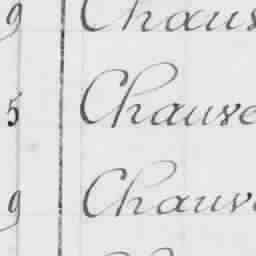 9 Chaus
5 Chauve
9 Chauv